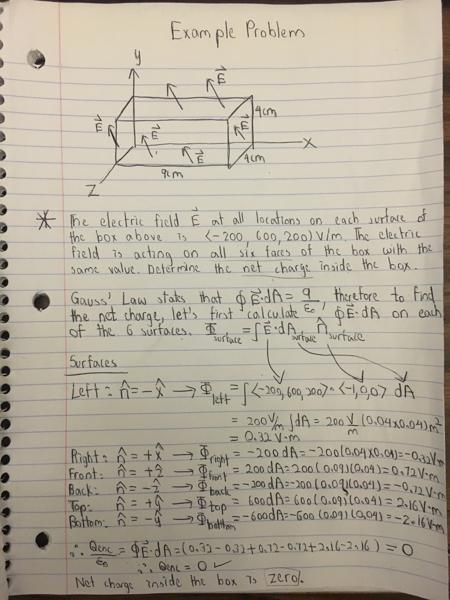 Example Problem
y
E⃗
4cm
E⃗
E⃗
E⃗
X
E⃗
4cm
9cm
Z
* The electric field E⃗ at all locations on each surface of
the box above is <-200, 600, 200> V/m. The electric
field is acting on all six faces of the box with the
same value. Determine the net charge inside the box.
Gauss' Law states that ∮E⃗·dA = q/ε₀, therefore to find
the net charge, let's first calculate ∮E⃗·dA on each
of the 6 surfaces. Φsurface = ∫E⃗·dAsurface n̂surface
Surfaces
Left: n̂ = -x̂ → Φleft = ∫<-200,600,200>·<-1,0,0> dA
= 200 V/m ∫dA = 200 V/m (0.04x0.04)m²
= 0.32 V·m
Right: n̂ = +x̂ → Φright = -200dA = -200(0.04)(0.04) = -0.32V·m
Front: n̂ = +ẑ → Φfront = 200dA = 200(0.09)(0.04) = 0.72V·m
Back: n̂ = -ẑ → Φback = -200dA = -200(0.09)(0.04) = -0.72V·m
Top: n̂ = +ŷ → Φtop = 600dA = 600(0.09)(0.04) = 2.16V·m
Bottom: n̂ = -ŷ → Φbottom = -600dA = -600(0.09)(0.04) = -2.16V·m
∴ Qenc/ε₀ = ∮E⃗·dA = (0.32-0.32+0.72-0.72+2.16-2.16) = 0
∴ Qenc = 0 ✓
Net charge inside the box is zero.